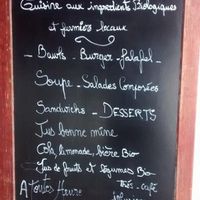 Cuisine aux ingrédients Biologiques
et fermiers locaux
- Burger - Falafel -
Soupe - Salades Composées
Sandwichs - DESSERTS
Jus bonne mine
Cola, limonade, bière Bio
Jus de fruits et légumes Bio
A Toutes Heure thés - café